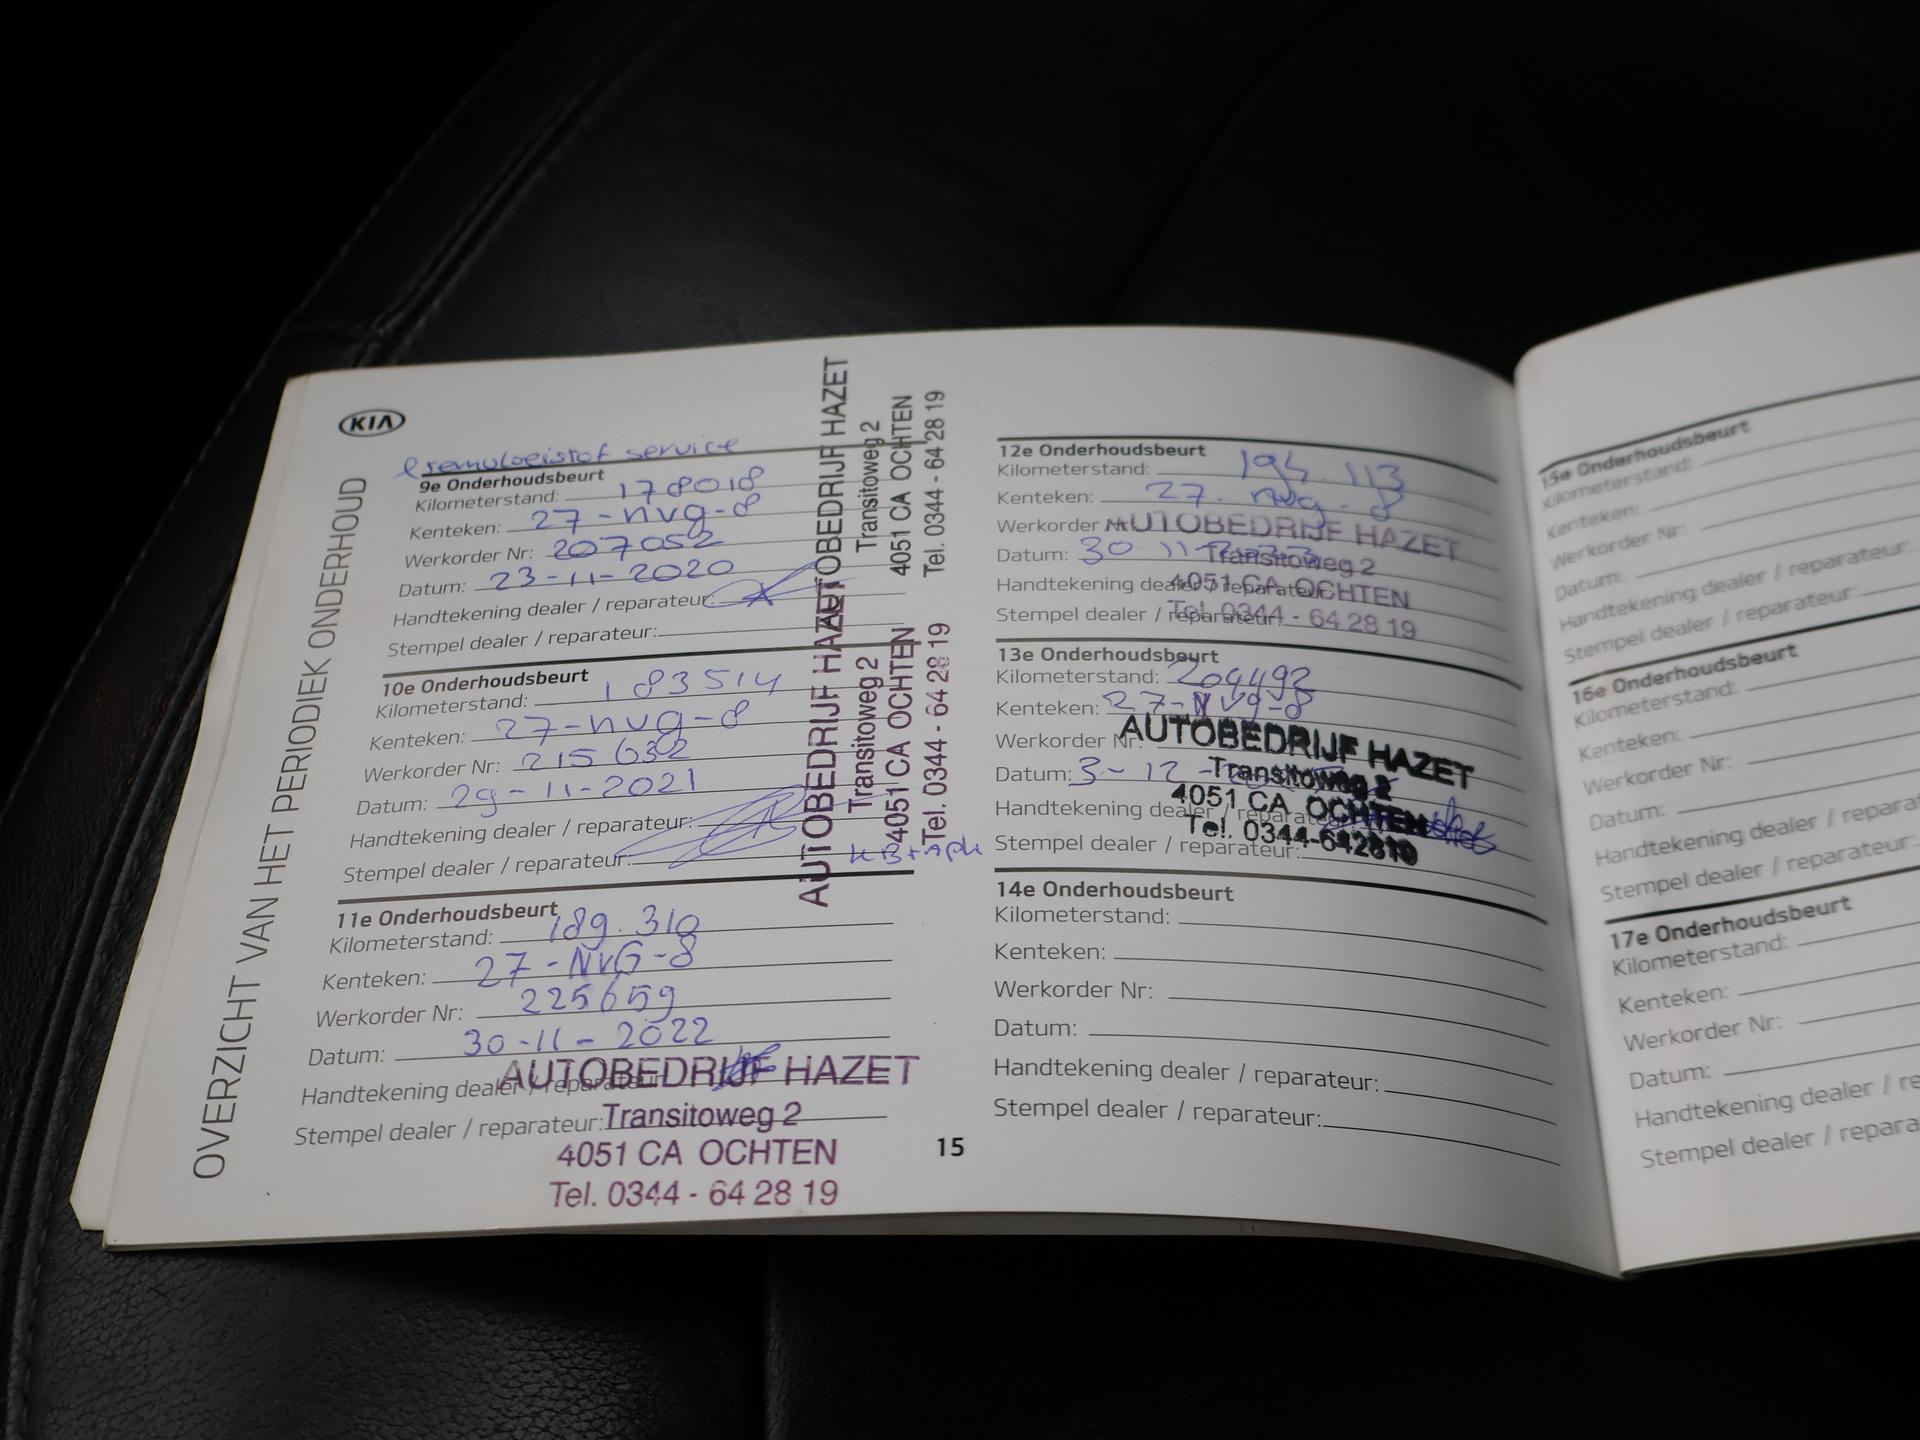 KIA
OVERZICHT VAN HET PERIODIEK ONDERHOUD
remvloeistof service
9e Onderhoudsbeurt
Kilometerstand: 178018
Kenteken: 27-nvg-8
Werkorder Nr: 207052
Datum: 23-11-2020
Handtekening dealer / reparateur:
Stempel dealer / reparateur:
AUTOBEDRIJF HAZET
Transitoweg 2
4051 CA OCHTEN
Tel. 0344 - 64 28 19
10e Onderhoudsbeurt
Kilometerstand: 183514
Kenteken: 27-nvg-8
Werkorder Nr: 215632
Datum: 29-11-2021
Handtekening dealer / reparateur:
Stempel dealer / reparateur:
AUTOBEDRIJF HAZET
Transitoweg 2
4051 CA OCHTEN
Tel. 0344 - 64 28 19
11e Onderhoudsbeurt
Kilometerstand: 189.310
Kenteken: 27-NVG-8
Werkorder Nr: 225659
Datum: 30-11-2022
Handtekening dealer / reparateur:
Stempel dealer / reparateur:
AUTOBEDRIJF HAZET
Transitoweg 2
4051 CA OCHTEN
Tel. 0344 - 64 28 19
15
12e Onderhoudsbeurt
Kilometerstand: 195.113
Kenteken: 27-nvg-8
Werkorder Nr:
Datum: 30 11
Handtekening dealer / reparateur:
Stempel dealer / reparateur:
AUTOBEDRIJF HAZET
Transitoweg 2
4051 CA OCHTEN
Tel. 0344 - 64 28 19
13e Onderhoudsbeurt
Kilometerstand: 204492
Kenteken: 27-NVg-8
Werkorder Nr:
Datum: 3-12-
Handtekening dealer / reparateur:
Stempel dealer / reparateur:
AUTOBEDRIJF HAZET
Transitoweg 2
4051 CA OCHTEN
Tel. 0344-642819
14e Onderhoudsbeurt
Kilometerstand:
Kenteken:
Werkorder Nr:
Datum:
Handtekening dealer / reparateur:
Stempel dealer / reparateur:
15e Onderhoudsbeurt
Kilometerstand:
Kenteken:
Werkorder Nr:
Datum:
Handtekening dealer / reparateur:
Stempel dealer / reparateur:
16e Onderhoudsbeurt
Kilometerstand:
Kenteken:
Werkorder Nr:
Datum:
Handtekening dealer / reparat
Stempel dealer / reparateur:
17e Onderhoudsbeurt
Kilometerstand:
Kenteken:
Werkorder Nr:
Datum:
Handtekening dealer / re
Stempel dealer / repara